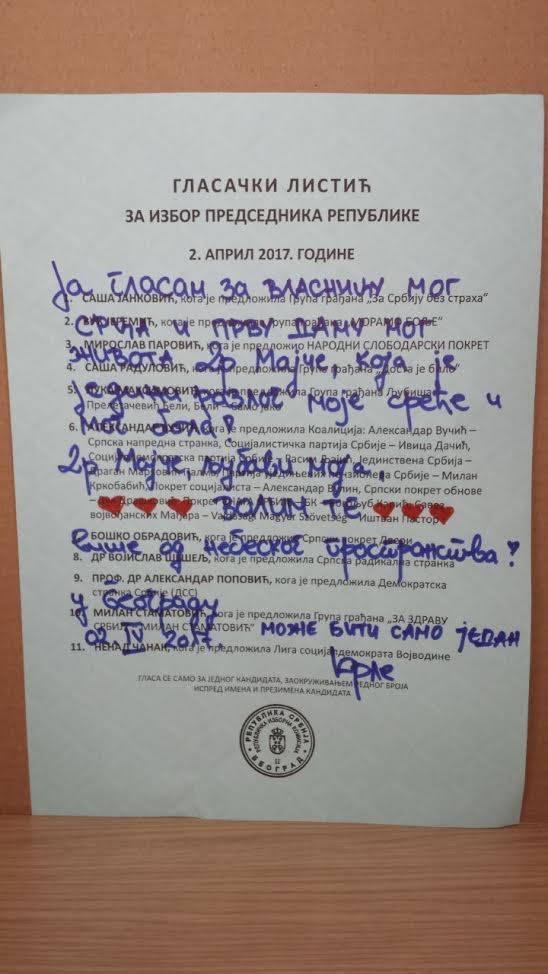 ГЛАСАЧКИ ЛИСТИЋ
ЗА ИЗБОР ПРЕДСЕДНИКА РЕПУБЛИКЕ
2. АПРИЛ 2017. ГОДИНЕ
Ја гласам за власницу мог
1. САША ЈАНКОВИЋ, кога је предложила Група грађана „За Србију без страха“
срца и прву даму мог
2. кога је предложила Група грађана „МОРАМО БОЉЕ“
3. МИРОСЛАВ ПАРОВИЋ, кога је предложио НАРОДНИ СЛОБОДАРСКИ ПОКРЕТ
живота др Мајче која је
4. САША РАДУЛОВИЋ, кога је предложила Група грађана „Доста је било“
једини разлог моје среће и
5. кога је предложила Група грађана Љубиша
Прелетачевић Бели, Бели –
мог
6. АЛЕКСАНДАР ВУЧИЋ, кога је предложила Коалиција: Александар Вучић –
Српска напредна странка, Социјалистичка партија Србије – Ивица Дачић,
Јединствена Србија –
др Мајче, љубави моја,
Србије – Милан
Кркобабић, Покрет социјалиста – Александар Вулин, Српски покрет обнове
ВОЛИМ ТЕ
војвођанских Мађара – Vajdasági Magyar Szövetség – Иштван Пастор
БОШКО ОБРАДОВИЋ, кога је предложио Српски покрет Двери
више од небеског пространства!
8. ДР ВОЈИСЛАВ ШЕШЕЉ, кога је предложила Српска радикална странка
9. ПРОФ. ДР АЛЕКСАНДАР ПОПОВИЋ, кога је предложила Демократска
странка Србије (ДСС)
у Београду
10. МИЛАН СТАМАТОВИЋ, кога је предложила Група грађана „ЗА ЗДРАВУ
СРБИЈУ – МИЛАН СТАМАТОВИЋ“
02. IV 2017. МОЖЕ БИТИ САМО ЈЕДАН
11. НЕНАД ЧАНАК, кога је предложила Лига социјалдемократа Војводине
ГЛАСА СЕ САМО ЗА ЈЕДНОГ КАНДИДАТА, ЗАОКРУЖИВАЊЕМ РЕДНОГ БРОЈА
ИСПРЕД ИМЕНА И ПРЕЗИМЕНА КАНДИДАТА
РЕПУБЛИКА СРБИЈА
РЕПУБЛИЧКА ИЗБОРНА КОМИСИЈА
БЕОГРАД